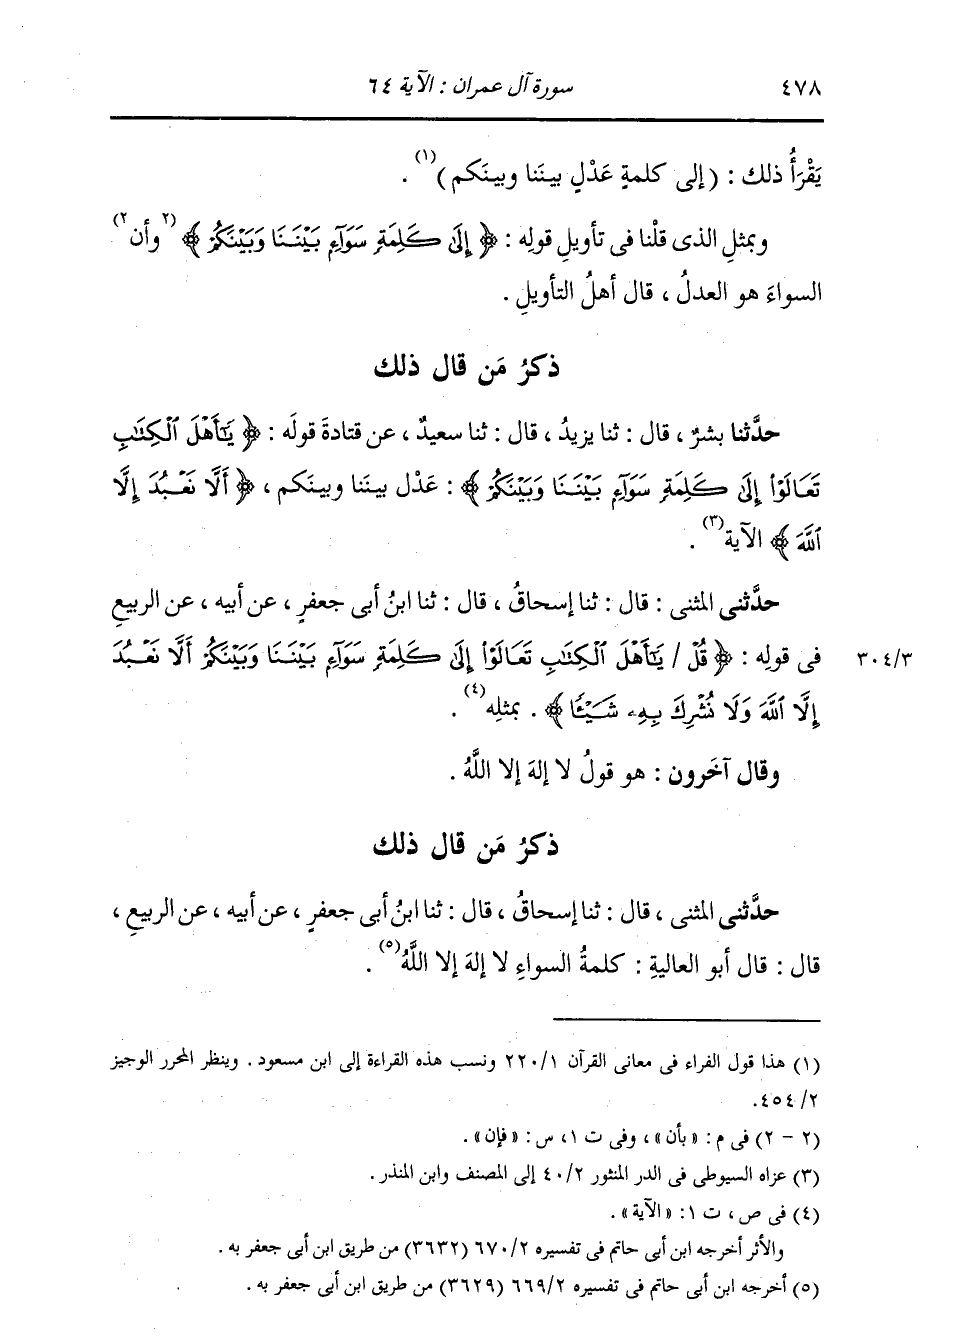 ٤٧٨ سورة آل عمران : الآية ٦٤
يَقْرَأُ ذلك : (إلى كلمةٍ عَدْلٍ بينَنا وبينَكم)(١) .
وبمثلِ الذى قلْنا فى تأويلِ قولِه : ﴿ إِلَىٰ كَلِمَةٍ سَوَآءٍ بَيْنَنَا وَبَيْنَكُمْ ﴾ (٢ وأن٢)
السواءَ هو العدلُ ، قال أهلُ التأويلِ .
ذكرُ مَن قال ذلك
حدَّثنا بشرٌ ، قال : ثنا يزيدُ ، قال : ثنا سعيدٌ ، عن قتادةَ قولَه : ﴿ يَٰٓأَهْلَ ٱلْكِتَٰبِ
تَعَالَوْا۟ إِلَىٰ كَلِمَةٍ سَوَآءٍ بَيْنَنَا وَبَيْنَكُمْ ﴾ : عَدْل بينَنا وبينَكم ، ﴿ أَلَّا نَعْبُدَ إِلَّا
ٱللَّهَ ﴾ الآية(٣) .
حدَّثنى المثنى : قال : ثنا إسحاقُ ، قال : ثنا ابنُ أبى جعفرٍ ، عن أبيه ، عن الربيعِ
فى قولِه : ﴿ قُلْ / يَٰٓأَهْلَ ٱلْكِتَٰبِ تَعَالَوْا۟ إِلَىٰ كَلِمَةٍ سَوَآءٍ بَيْنَنَا وَبَيْنَكُمْ أَلَّا نَعْبُدَ
٣٠٤/٣
إِلَّا ٱللَّهَ وَلَا نُشْرِكَ بِهِۦ شَيْـًٔا ﴾ . بمثلِه(٤) .
وقال آخَرون : هو قولُ لا إلهَ إلا اللَّهُ .
ذكرُ مَن قال ذلك
حدَّثنى المثنى ، قال : ثنا إسحاقُ ، قال : ثنا ابنُ أبى جعفرٍ ، عن أبيه ، عن الربيعِ ،
قال : قال أبو العاليةِ : كلمةُ السواءِ لا إلهَ إلا اللَّهُ(٥) .
(١) هذا قول الفراء فى معانى القرآن ٢٢٠/١ ونسب هذه القراءة إلى ابن مسعود . وينظر المحرر الوجيز
٢/ ٤٥٤.
(٢ - ٢) فى م : «بأن» ، وفى ت ١، س : «فإن» .
(٣) عزاه السيوطى فى الدر المنثور ٤٠/٢ إلى المصنف وابن المنذر .
(٤) فى ص ، ت ١: «الآية» .
والأثر أخرجه ابن أبى حاتم فى تفسيره ٦٧٠/٢ (٣٦٣٢) من طريق ابن أبى جعفر به .
(٥) أخرجه ابن أبى حاتم فى تفسيره ٦٦٩/٢ (٣٦٢٩) من طريق ابن أبى جعفر به .